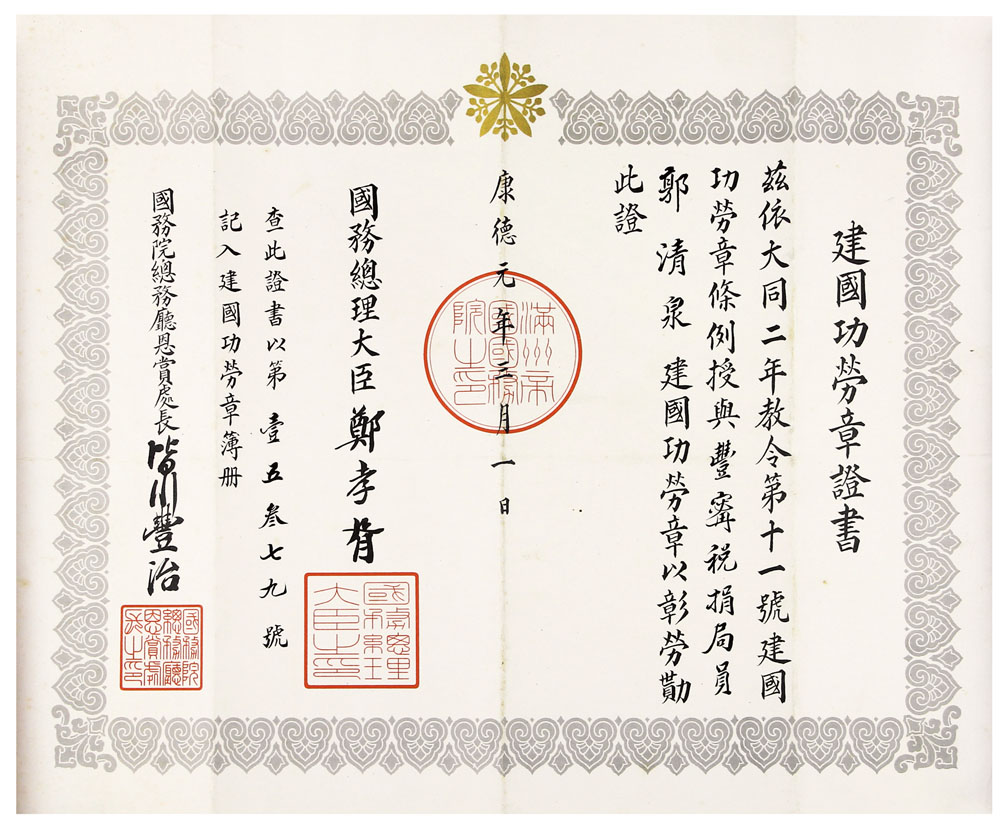 建國功勞章證書
茲依大同二年教令第十一號建國
功勞章條例授與豐甯稅捐局員
郭清泉 建國功勞章以彰勞勩
此證
康德元年三月一日
滿州帝
國國務
院之印
國務總理大臣鄭孝胥
國務總理
大臣之印
查此證書以第壹五叁七九號
記入建國功勞章簿册
國務院總務廳恩賞處長皆川豐治
國務院
總務廳
恩賞處
長之印